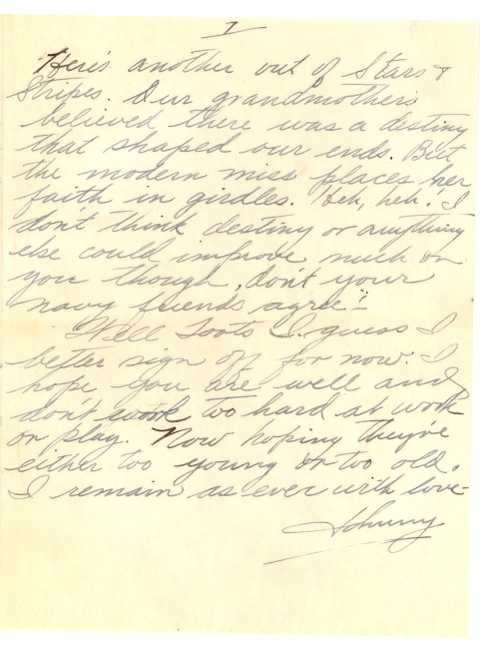 7
Here's another out of Stars &
Stripes. Our grandmothers
believed there was a destiny
that shaped our ends. But
the modern miss places her
faith in girdles. Heh, heh. I
don't think destiny or anything
else could improve much on
you though, don't your
navy friends agree?
Well Toots I guess I
better sign off for now. I
hope you are well and
don't work too hard at work
or play. Now hoping they're
either too young or too old.
I remain as ever with love-
Johnny